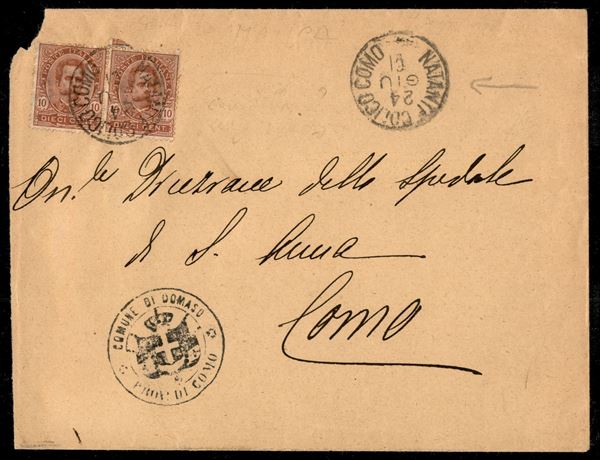 POSTE ITALIANE
10 10
DIECI CENT
POSTE ITALIANE
10 10
DIECI CENT
COLICO COMO
24
GIU
COLICO COMO
On.le Direzione dello Spedale
di S. Anna
Como
COMUNE DI DOMASO
PROV. DI COMO